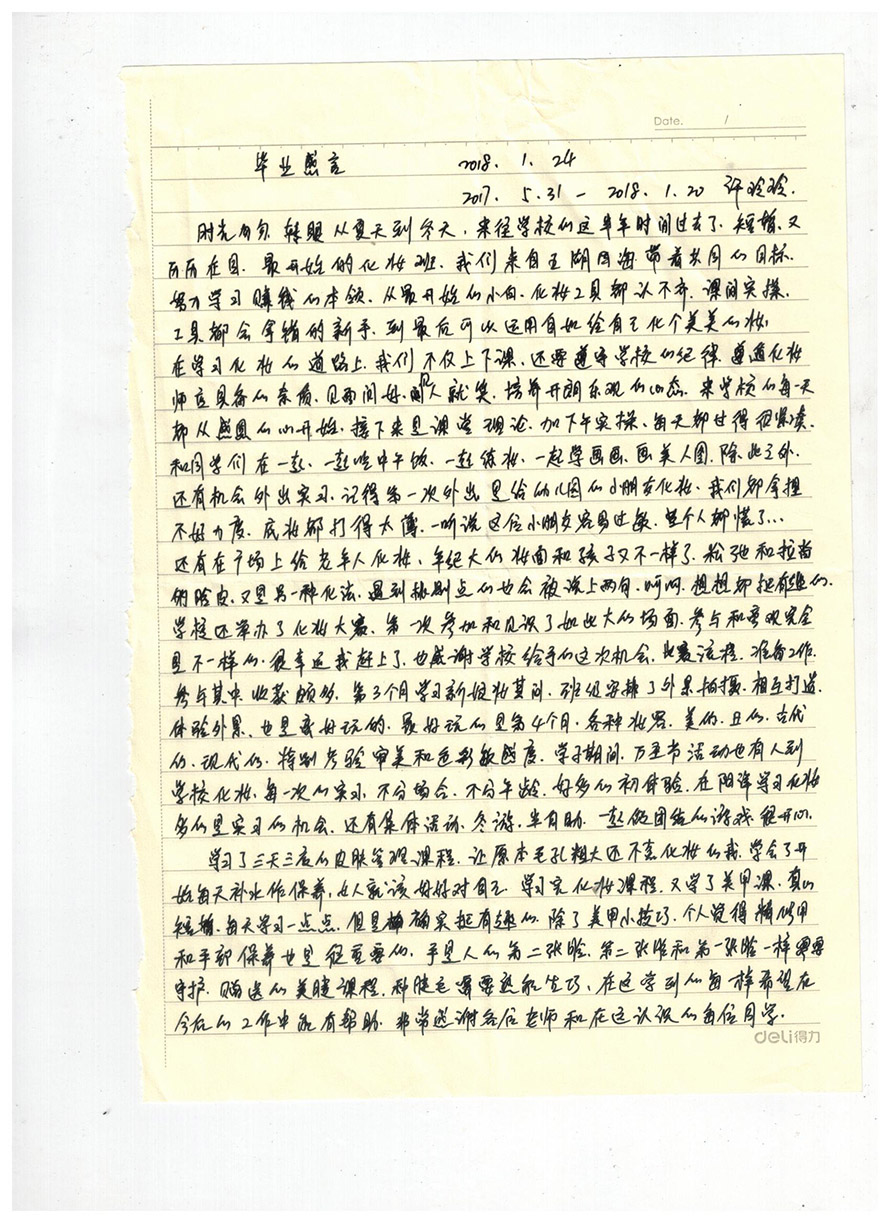 Date. /
毕业感言 2018. 1. 24
2017. 5.31 - 2018. 1.20 许玲玲.
时光匆匆 转眼从夏天到冬天，来径学校的这半年时间过去了. 短暂. 又
历历在目. 最开始的化妆班. 我们来自五湖四海 带着共同的目标.
努力学习赚钱的本领. 从最开始的小白. 化妆工具都认不齐. 课间实操.
工具都会拿错的新手. 到最后可以运用自如给自己化个美美的妆，
在学习化妆的道路上. 我们不仅上下课. 还要遵守学校的纪律. 遵循化妆
师应具备的素质. 见面问好. 见人就笑. 培养开朗乐观的心态. 来学校的每一天
都从感恩的心开始. 接下来是课堂理论. 加下午实操. 每天都过得很紧凑.
和同学们在一起. 一起吃中午饭. 一起练妆. 一起学画画. 画美人图. 除此之外.
还有机会外出实习. 记得第一次外出是给幼儿园的小朋友化妆. 我们都拿捏
不好力度. 底妆都打得太薄. 一听说这位小朋友容易过敏. 整个人都慌了...
还有在广场上给老年人化妆. 年纪大的妆面和孩子又不一样了. 松弛和拉脸
的脸皮. 又是另一种化法. 遇到挑剔点的也会被说上两句. 呵呵. 想想都挺有趣的.
学校还举办了化妆大赛. 第一次参加和见识了如此大的场面. 参与和旁观完全
是不一样的. 很幸运我赶上了. 也感谢学校给予的这次机会. 比赛流程. 准备工作.
参与其中. 收获颇多. 第3个月学习新娘妆期间. 班级安排了外景拍摄. 相互打造.
体验外景. 也是蛮好玩的. 最好玩的是第4个月. 各种妆容. 美的. 丑的. 古代
的. 现代的. 特别考验审美和色彩敏感度. 学习期间. 万圣节活动也有人到
学校化妆. 每一次的实习. 不分场合. 不分年龄. 好多的初体验. 在阳泽学习化妆
多的是实习的机会. 还有集体活动. 冬游. 半自助. 一起做团结的游戏 很开心.
学习了三天三夜的皮肤管理课程. 让原本毛孔粗大还不喜化妆的我. 学会了开
始每天补水作保养. 女人就该好好对自己. 学习完化妆课程. 又学了美甲课. 真的
短暂. 每天学习一点点. 但是确实挺有趣的. 除了美甲小技巧. 个人觉得修甲
和手部保养也是很重要的. 手是人的第二张脸. 第二张脸和第一张脸一样需要
守护. 赠送的美睫课程. 种睫毛需要熟能生巧. 在这学到的每一样希望在
今后的工作中能有帮助. 非常感谢各位老师和在这认识的每位同学.
deli得力